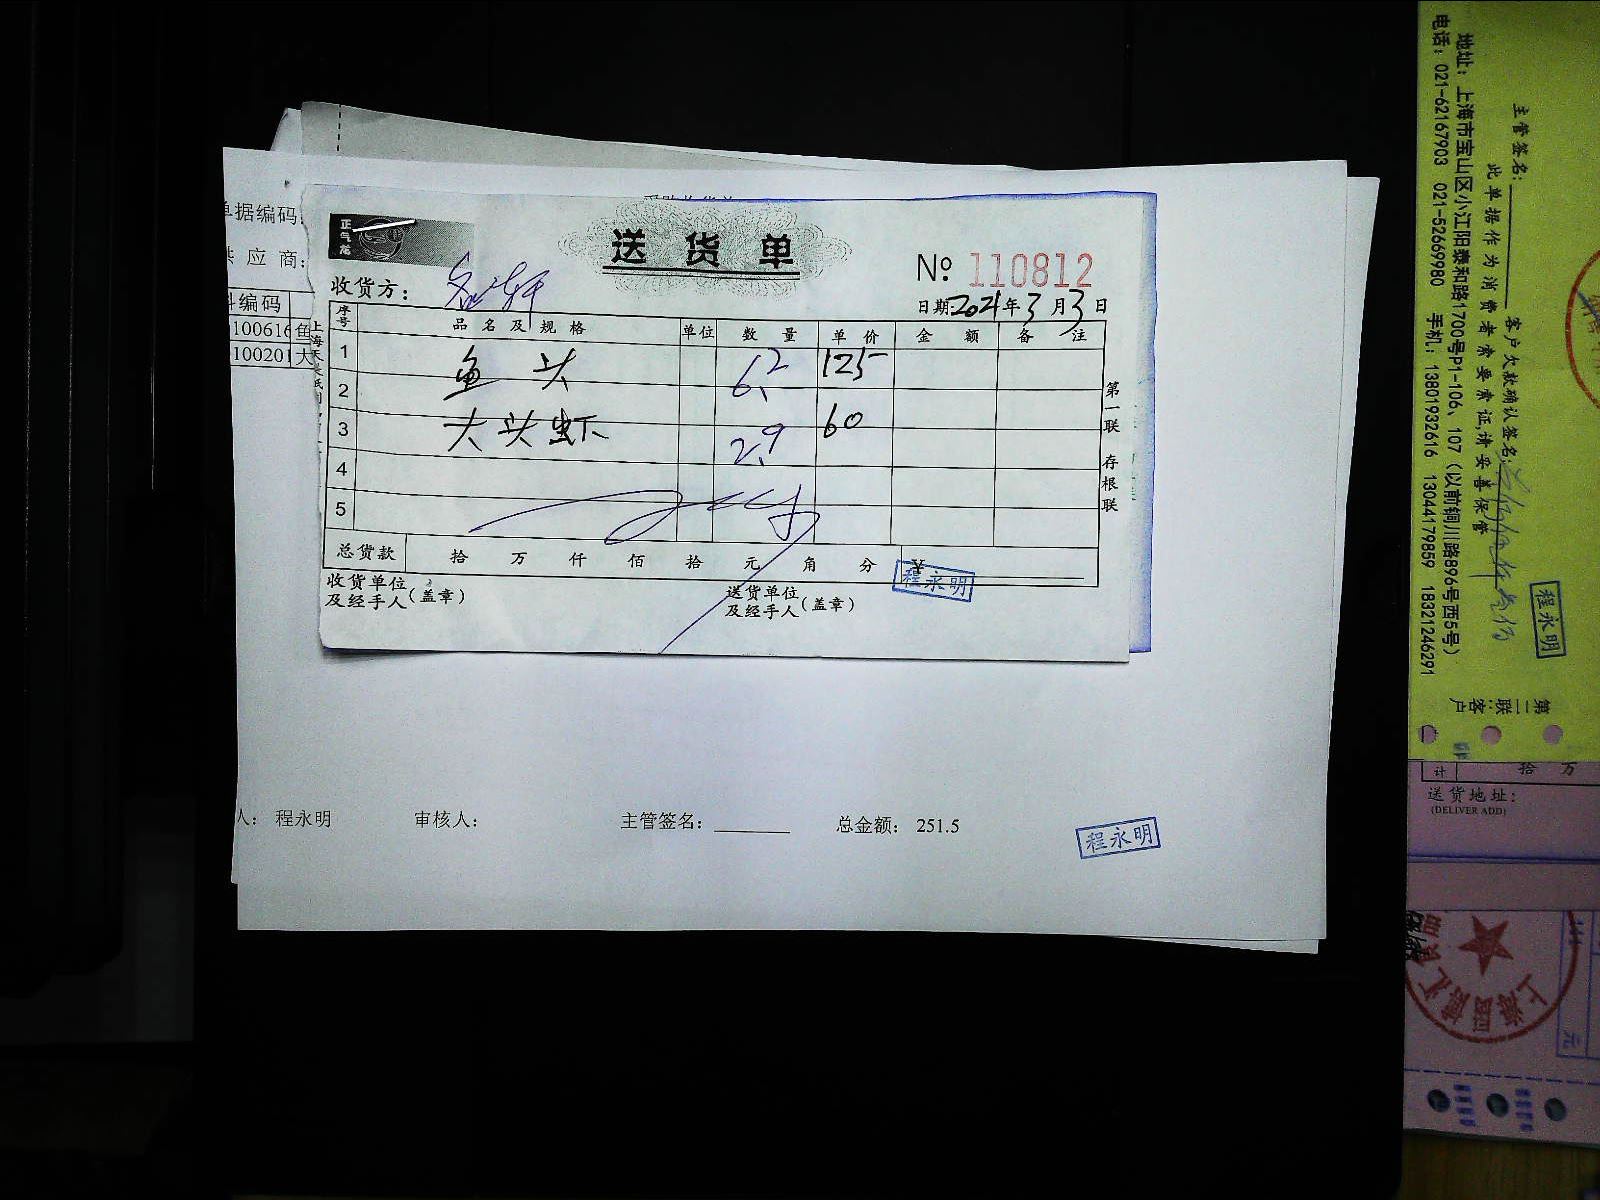 单据编码:
供 应 商:
料编码
0100616 鱼
0100201 大
正气
送 货 单
收货方:
№ 110812
日期:2021年3月3日
序号 品 名 及 规 格 单位 数 量 单 价 金 额 备 注
1 鱼 头 6.2 125
2
3 大头虾 2.9 60
4
5
总货款 拾 万 仟 佰 拾 元 角 分 ¥
收货单位
及经手人(盖章)
送货单位
及经手人(盖章)
程永明
第一联 存根联
人: 程永明 审核人: 主管签名: 总金额: 251.5
程永明
主管签名:
此单据作为消费者索要索证,请妥善保管
地址: 上海市宝山区小江阳泰和路1700号P1-106、107 (以前铜川路896号西5号)
电话: 021-62167903 021-52669980 手机: 13801932616 13044179859 18321246291
客户欠款确认签名:
程永明
第二联:客户
计 拾 万
送货地址:
(DELIVER ADD)
元